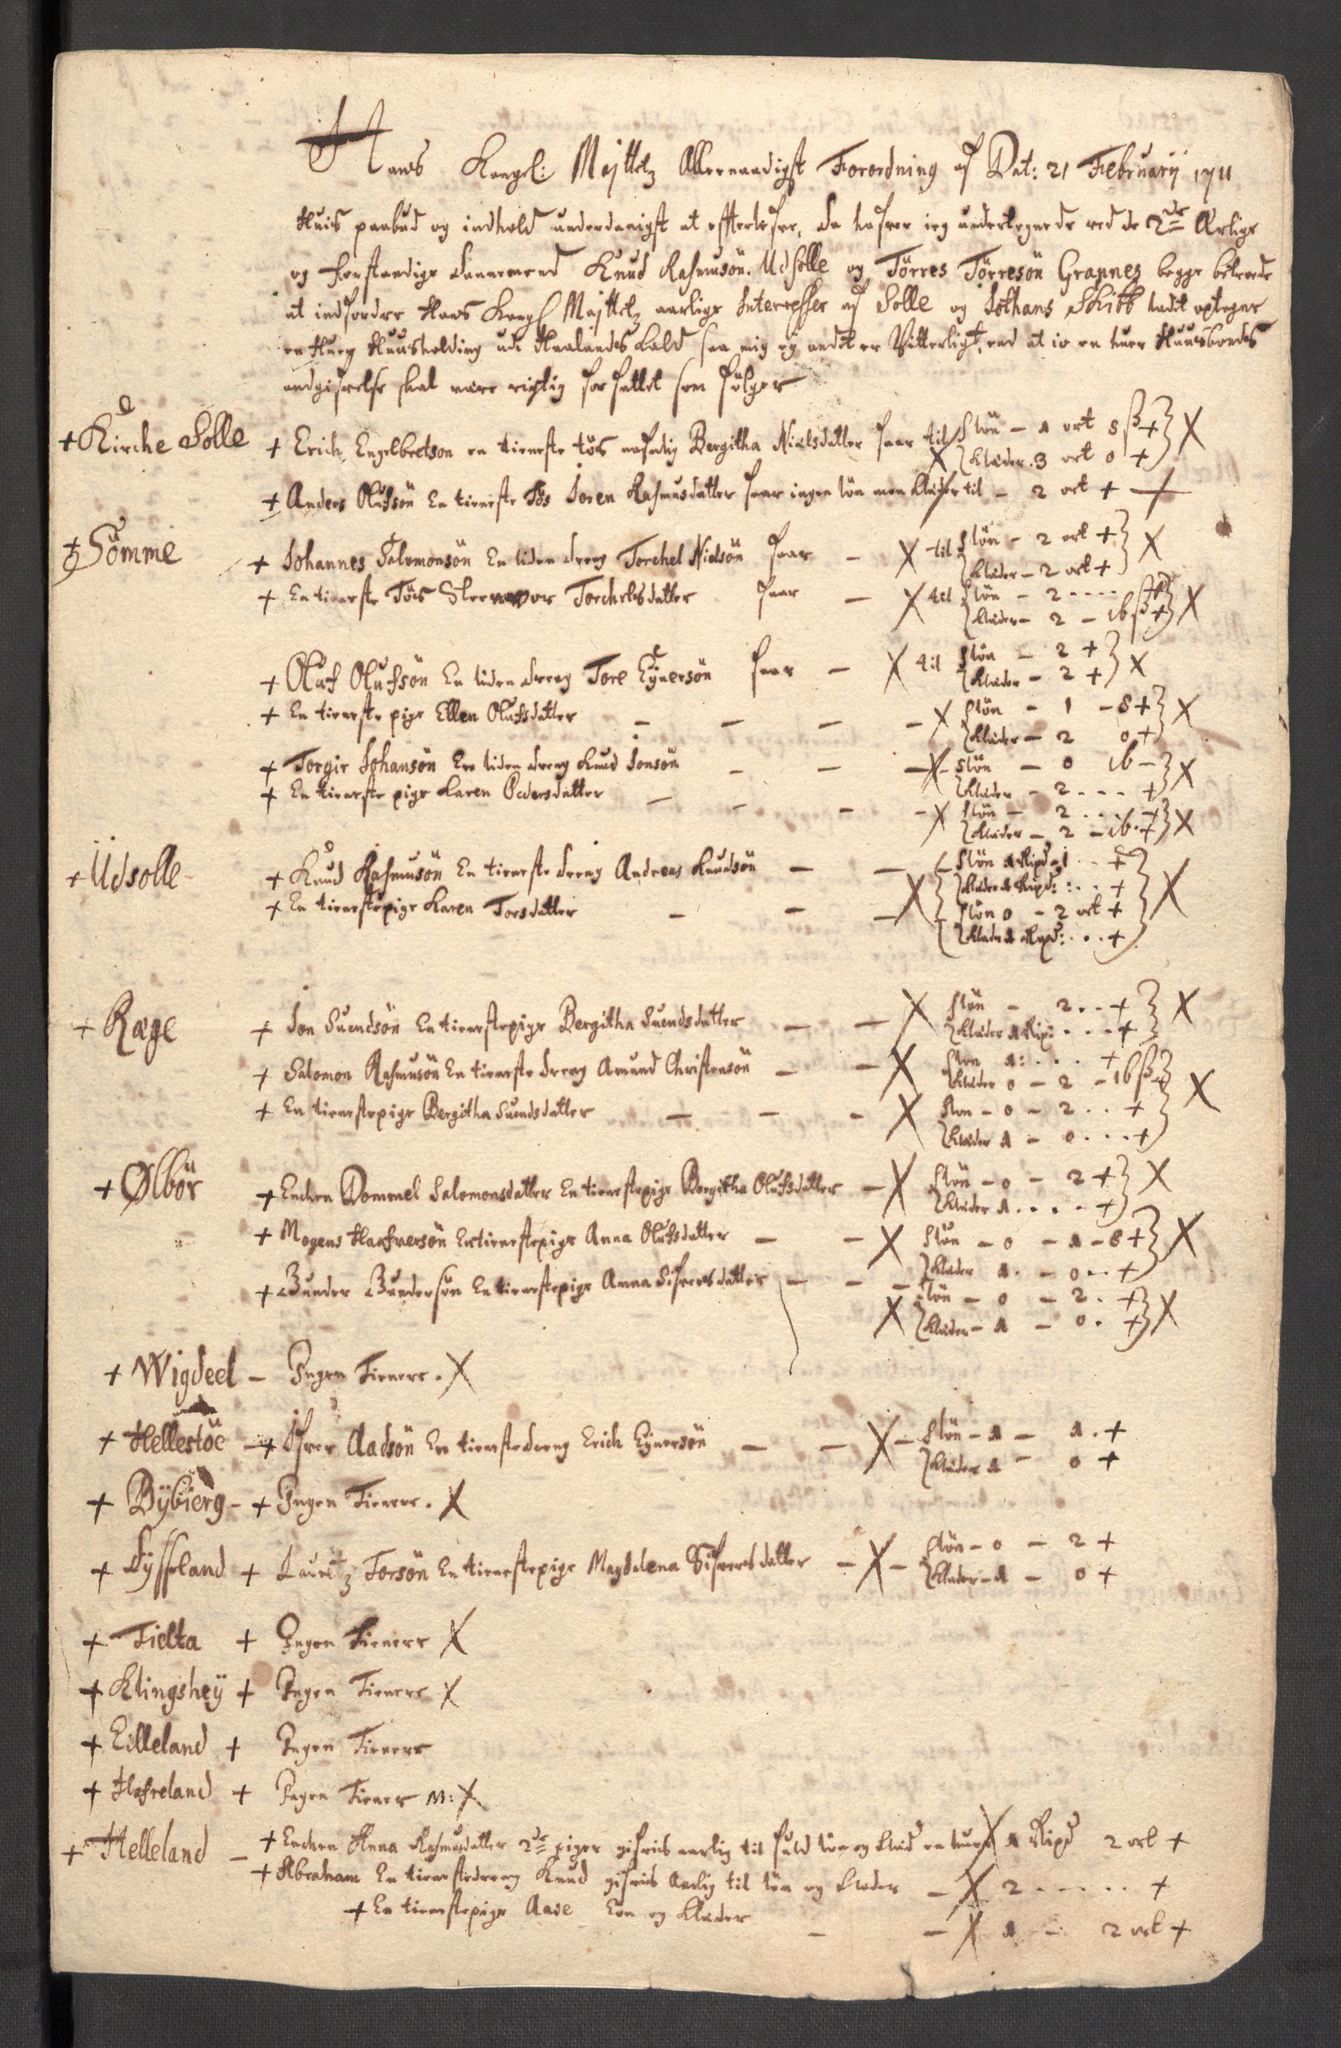 Hans Kongel: Majttetz Allernaadigst Forordning af Dat: 21 Februarÿ 1711
Huis paabud og indhold underdanigst at effterlefve, da hafver ieg undertegnede ved de 2de Ærlige
og forstandige dannemend Knud Rasmusön Udsolle og Törres Törresön Grannes begge beboende
at indfordre Hans Kongl Majttetz aarlige Interesser af Solle og Jothans Skibb ladet optegne
en huer Huusholding udi Haalandts Lald saa mig ej andet er Vitterligt, end at io en huer Huusbondes
andgifvelse skal være rigtig forfattet som fölger
+ Kirche Solle + Erich Engelbretson en tieneste tös nafnlig Bergitha Nielsdatter faar til X Lön - 1 ort 8 ß + X
Klæder. 3 ort 0 +
+ Anders Olufsön En tieneste Tös Joren Rasmusdatter faar ingen lön men Klæder til - 2 ort +
+ Sömme + Johannes Salomonsön En liden dreng Torchel Nielsön faar - X til Lön - 2 ort + X
Klæder - 2 ort +
+ En tieneste Tös Torchelsdatter faar - X till Lön - 2 .... + X
Klæder - 2 - 16 ß +
+ Oluf Olufsön En liden dreng Tore Eÿnersön faar - X till Lön - 2 + X
Klæder - 2 +
+ En tieneste pige Ellen Olufsdatter - - - X Lön - 1 - 8 + X
Klæder - 2 0 +
+ Torgir Johansön En liden dreng Knud Jonsön - - X Lön - 0 16 - X
Klæder - 2 .... +
+ En tieneste pige Karen Pedersdatter - - - X Lön - 2 ... + X
Klæder - 2 - 16 . +
+ Udsolle + Knud Rasmusön En tieneste dreng Andreas Knudsön - - Lön 1 Ripd - 1 .. +
Klæder 1 Ripd: . . . +
+ En tienestepige Karen Torsdatter - - - X Lön 0 - 2 ort + X
Klæder 1 Ripd: . . . +
+ Ræge + Jon Suendsön En tienestepige Bergitha Suendsdatter - - X Lön - 2 .. + X
Klæder 1 Rip: . . . +
+ Salomon Rasmusön En tieneste dreng Amund Christensön - - X Lön 1: . . . +
Klæder 0 - 2 - 16 ß + X
+ En tienestepige Bergitha Suendsdatter - - - X Lön - 0 - 2 . . +
Klæder 1 - 0 . . . +
+ Ølbör + Enchen Dommel Salomonsdatter En tienestepige Bergitha Olufsdatter - X Lön - 0 - 2 + X
Klæder 1 . . . . +
+ Mogens Halfversön En tienestepige Anna Olufsdatter - - X Lön - 0 - 1 - 8 + X
Klæder 1. - 0 .. +
+ Gunder Gundersön En tienestepige Anna Sifversdatter - - - Lön - 0 - 2 . +
X Klæder - 1 - 0 . + X
+ Wigdeel - Ingen Tienere . X
+ Hellestöe - + Ifver Aadsön En tienestedreng Erich Eÿnersön - - X - Lön - 1 - 1 . +
Klæder 1 - 0 +
+ Bÿbierg - + Ingen Tienere . X
+ Sÿsseland + Lauritz Torsön En tienestepige Magdalena Sifversdatter - X - Lön - 0 - 2 +
Klæder - 1 - 0 +
+ Tielta + Ingen Tienere X
+ Klingsheÿ + Ingen Tienere X
+ Eilleland + Ingen Tienere
+ Hafreland + Ingen Tiener M: X
+ Helleland - + Enchen Anna Rasmusdatter 2de piger gifvis aarlig til fuld lön og klæd en huer X 1 Ripd 2 ort +
+ Abraham En tienestedreng Knud gifvis Aarlig til lön og Klæder - X 2 . . . . . +
+ En tienestepige Aase Lön og klæder - - X 1 - 2 ort +